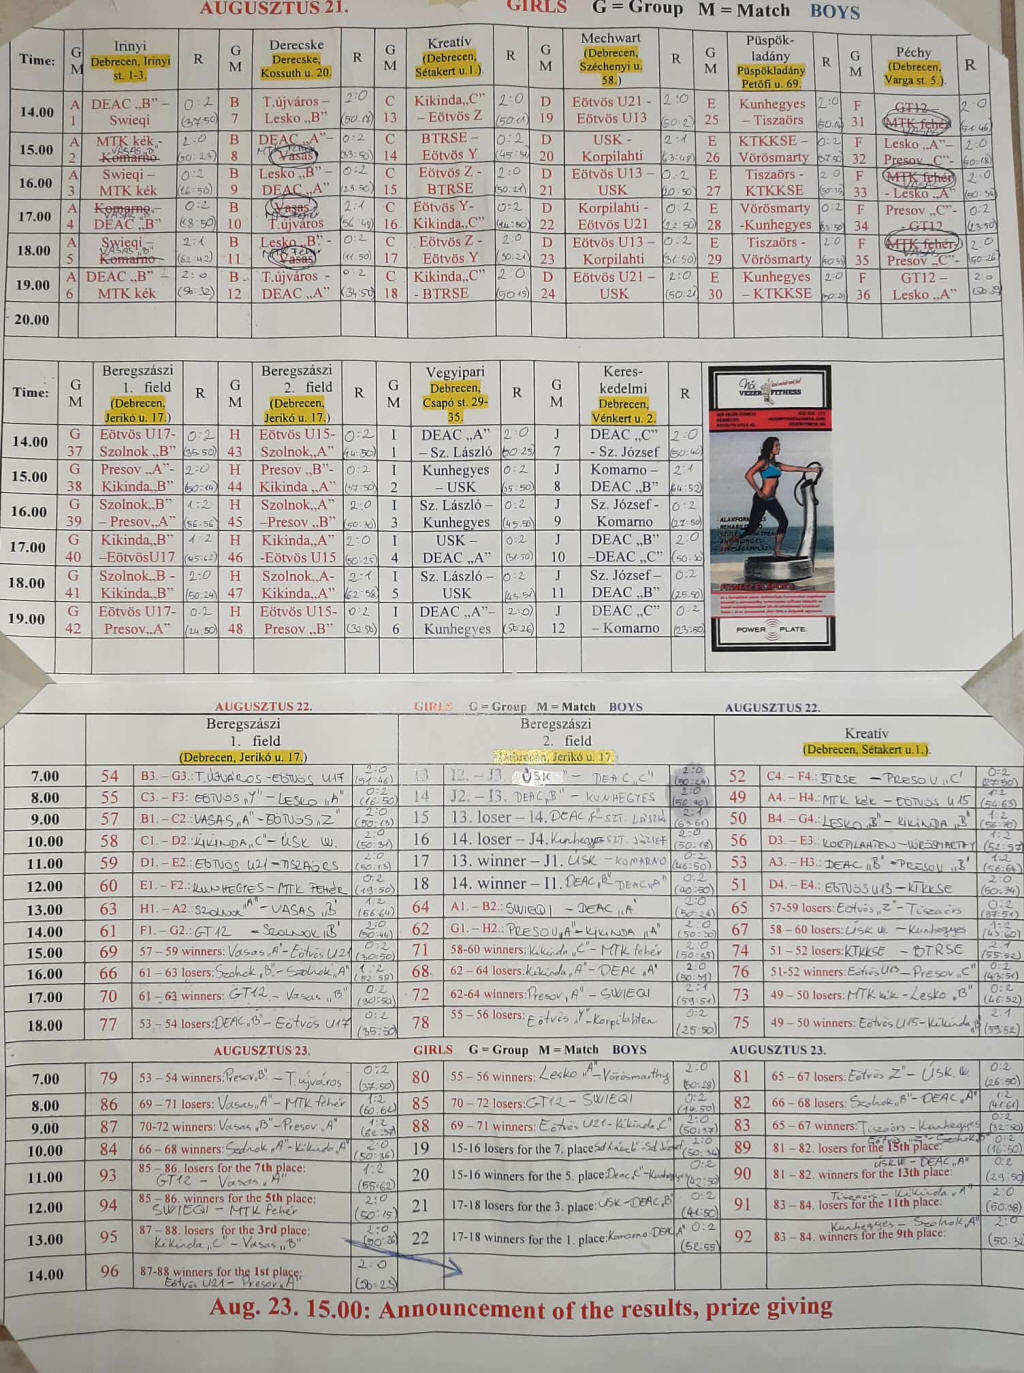 AUGUSZTUS 21. GIRLS G = Group M = Match BOYS
Time: G M Irinyi Debrecen, Irinyi st. 1-3. R G M Derecske Derecske, Kossuth u. 20. R G M Kreatív (Debrecen, Sétakert u.1.). R G M Mechwart (Debrecen, Széchenyi u. 58.) R G M Püspökladány Püspökladány Petőfi u. 69. R G M Péchy (Debrecen, Varga st. 5.). R
14.00 A DEAC „B” – 0:2 B T.újváros – 2:0 C Kikinda„C” 2:0 D Eötvös U21 - 2:0 E Kunhegyes 2:0 F GT12 – 2:0
1 Swieqi (37:50) 7 Lesko „B” 13 – Eötvös Z 19 Eötvös U13 25 – Tiszaörs 31 MTK fehér (51:46)
15.00 A MTK kék - 2:0 B DEAC „A”– 0:2 C BTRSE – 0:2 D USK - 2:1 E KTKKSE – 0:2 F Lesko „A”– 2:0
2 Komarno VASAS „B” 8 Vasas 14 Eötvös Y 20 Korpilahti 26 Vörösmarty 32 Presov „C”
16.00 A Swieqi – 0:2 B Lesko „B” – 0:2 C Eötvös Z - 0:2 D Eötvös U13 – 0:2 E Tiszaörs - 0:2 F MTK fehér 2:0
3 MTK kék (16:50) 9 DEAC „A” 15 BTRSE (50:21) 21 USK 27 KTKKSE 33 - Lesko „A”
17.00 A Komarno - 0:2 B Vasas – 2:1 C Eötvös Y- 0:2 D Korpilahti - 0:2 E Vörösmarty 0:2 F Presov „C”- 0:2
4 DEAC „B” 10 T.újváros 16 Kikinda„C” 22 Eötvös U21 28 -Kunhegyes 34 - GT12
18.00 A Swieqi – 2:1 B Lesko „B”- 0:2 C Eötvös Z - 0:2 D Eötvös U13 – 0:2 E Tiszaörs - 2:0 F MTK fehér- 2:0
5 Komarno VASAS „B” (62:42) 11 Vasas (11:50) 17 Eötvös Y 23 Korpilahti 29 Vörösmarty 35 Presov „C”-
19.00 A DEAC „B” – 2:0 B T.újváros - 0:2 C Kikinda„C” 2:0 D Eötvös U21 – 2:0 E Kunhegyes 2:0 F GT12 – 2:0
6 MTK kék (56:32) 12 DEAC „A” (34:50) 18 - BTRSE 24 USK 30 – KTKKSE 36 Lesko „A”
20.00
Time: G M Beregszászi 1. field (Debrecen, Jerikó u. 17.) R G M Beregszászi 2. field (Debrecen, Jerikó u. 17.) R G M Vegyipari Debrecen, Csapó st. 29-35. R G M Kereskedelmi Debrecen, Vénkert u. 2. R
14.00 G Eötvös U17- 0:2 H Eötvös U15- 0:2 I DEAC „A” 2:0 J DEAC „C” 2:0
37 Szolnok „B” (35:50) 43 Szolnok„A” (44:50) 1 – Sz. László (50:25) 7 - Sz. József (50:40)
15.00 G Presov „A”- 2:0 H Presov „B”- 0:2 I Kunhegyes 0:2 J Komarno – 2:1
38 Kikinda„B” (50:14) 44 Kikinda „A” 2 – USK (35:50) 8 DEAC „B” (64:52)
16.00 G Szolnok„B” 1:2 H Szolnok „A” 2:0 I Sz. László – 0:2 J Sz. József- 0:2
39 – Presov„A” (56:56) 45 –Presov „B” 3 Kunhegyes (45:50) 9 Komarno (27:50)
17.00 G Kikinda„B” 1:2 H Kikinda„A” 2:0 I USK – 0:2 J DEAC „B” 2:0
40 –EötvösU17 (45:62) 46 -Eötvös U15 (50:25) 4 DEAC „A” 10 –DEAC „C” (50:30)
18.00 G Szolnok„B - 2:0 H Szolnok„A- 2:1 I Sz. László – 0:2 J Sz. József– 0:2
41 Kikinda„B” (50:24) 47 Kikinda„A” (62:58) 5 USK 11 DEAC „B” (25:50)
19.00 G Eötvös U17- 0:2 H Eötvös U15- 0:2 I DEAC „A”– 2:0 J DEAC „C” 0:2
42 Presov„A” (24:50) 48 Presov „B” 6 Kunhegyes (50:26) 12 – Komarno (23:50)
VEZÉR FITNESS
POWER PLATE.
AUGUSZTUS 22. GIRLS G = Group M = Match BOYS AUGUSZTUS 22.
Beregszászi 1. field (Debrecen, Jerikó u. 17.) Beregszászi 2. field (Debrecen, Jerikó u. 17. Kreatív (Debrecen, Sétakert u.1.).
7.00 54 B3. – G3.: T.ÚJVÁROS - EÖTVÖS U17 2:0 (51:46) 13 I2. – J3. ÜSK – DEAC „C” 2:0 (50:24) 52 C4. – F4.: BTRSE – PRESOV „C” 0:2 (27:50)
8.00 55 C3. – F3: EÖTVÖS „Y” – LESKO „A” 0:2 (16:50) 14 J2. – I3. DEAC „B” – KUNHEGYES 2:0 49 A4. – H4.: MTK kék – EÖTVÖS U15 1:2 (54:63)
9.00 57 B1. – C2.: VASAS „A” – EÖTVÖS „Z” 2:0 15 13. loser – 14. DEAC „C” – SZT. LÁSZLÓ 2:1 (63:61) 50 B4. – G4.: LESKO „B” – KIKINDA „B” 1:2
10.00 58 C1. – D2.: KIKINDA „C” – ÜSK W. 2:0 (50:31) 16 14. loser – J4. Kunhegyes SZT. JÓZSEF 2:0 (50:18) 56 D3. – E3.: KORPILAHTEN – VÖRÖSMARTHY 0:2 (52:57)
11.00 59 D1. – E2.: EÖTVÖS U21 – TISZAÖRS 2:0 (50:13) 17 13. winner – J1. ÜSK – KOMARNO 0:2 (46:50) 53 A3. – H3.: DEAC „B” – PRESOV „B” 1:2 (56:64)
12.00 60 E1. – F2.: KUNHEGYES – MTK FEHÉR 0:2 (19:50) 18 14. winner – I1. DEAC „B” DEAC „A” 0:2 51 D4. – E4.: EÖTVÖS U13 – KTKKSE 2:0 (50:34)
13.00 63 H1. – A2.: Szolnok „A” – VASAS „B” 1:2 (56:64) 64 A1. – B2.: SWIEQI – DEAC „A” 2:0 (50:24) 65 57-59 losers: Eötvös „Z” – Tiszaörs 0:2 (37:51)
14.00 61 F1. – G2.: GT12 – SZOLNOK „B” 2:0 (50:44) 62 G1. – H2.: PRESOV „A” – KIKINDA „A” 2:0 (50:30) 67 58 – 60 losers: ÜSK W. – Kunhegyes 1:2 (43:60)
15.00 69 57 – 59 winners: Vasas „A” – Eötvös U21 0:2 (30:50) 71 58-60 winners: Kikinda „C” – MTK fehér 2:0 (50:35) 74 51 – 52 losers: KTKKSE – BTRSE 2:1 (55:52)
16.00 66 61 – 63 losers: Szolnok „B” – Szolnok „A” 1:2 (52:58) 68 62 – 64 losers: Kikinda „A” – DEAC „A” 2:0 (50:31) 76 51-52 winners: Eötvös U13 – Presov „C” 0:2 (43:51)
17.00 70 61 – 63 winners: GT12 – Vasas „B” 0:2 (30:50) 72 62-64 winners: Presov „A” – SWIEQI 2:1 (59:51) 73 49 – 50 losers: MTK kék – Lesko „B” 0:2 (46:52)
18.00 77 53 – 54 losers: DEAC „B” – Eötvös U17 0:2 (35:50) 78 55 – 56 losers: Eötvös „Y” – Korpilahten 0:2 (25:50) 75 49 – 50 winners: Eötvös U15 – Kikinda „B” 2:1 (59:52)
AUGUSZTUS 23. GIRLS G = Group M = Match BOYS AUGUSZTUS 23.
7.00 79 53 – 54 winners: Presov „B” – T.újváros 0:2 (37:50) 80 55 – 56 winners: Lesko „A” – Vörösmarthy 2:0 (50:28) 81 65 – 67 losers: Eötvös Z” – ÜSK W. 0:2 (26:50)
8.00 86 69 – 71 losers: Vasas „A” – MTK fehér 1:2 (60:64) 85 70 – 72 losers: GT12 – SWIEQI 0:2 (14:50) 82 66 – 68 losers: Szolnok „B” – DEAC „A” 1:2 (41:61)
9.00 87 70-72 winners: Vasas „B” – Presov „A” 1:2 (62:57) 88 69 – 71 winners: Eötvös U21 – Kikinda „C” 2:0 (50:37) 83 65 – 67 winners: Tiszaörs – Kunhegyes 0:2 (32:50)
10.00 84 66 – 68 winners: Szolnok „A” – Kikinda „A” 2:0 (50:36) 19 15-16 losers for the 7. place: Szt.László – Szt.József 2:0 (50:34) 89 81 – 82. losers for the 15th place: Eötvös „Z” – Szolnok „B” 0:2 (16:50)
11.00 93 85 – 86. losers for the 7th place: GT12 – Vasas „A” 1:2 (55:62) 20 15-16 winners for the 5. place: Deac „C” – Kunhegyes 0:2 (42:50) 90 81 – 82. winners for the 13th place: ÜSK W. – DEAC „A” 0:2 (29:50)
12.00 94 85 – 86. winners for the 5th place: SWIEQI – MTK fehér 2:0 (50:15) 21 17-18 losers for the 3. place: Üsk – DEAC „B” 0:2 (41:50) 91 83 – 84. losers for the 11th place: Tiszaörs – Kikinda „A” 2:0 (50:38)
13.00 95 87 – 88. losers for the 3rd place: Kikinda „C” – Vasas „B” 2:0 22 17-18 winners for the 1. place: Komarno – DEAC „A” 0:2 (52:55) 92 83 – 84. winners for the 9th place: Kunhegyes – Szolnok „A” 2:0
14.00 96 87-88 winners for the 1st place: Eötvös U21 – Presov „A” 2:0
Aug. 23. 15.00: Announcement of the results, prize giving